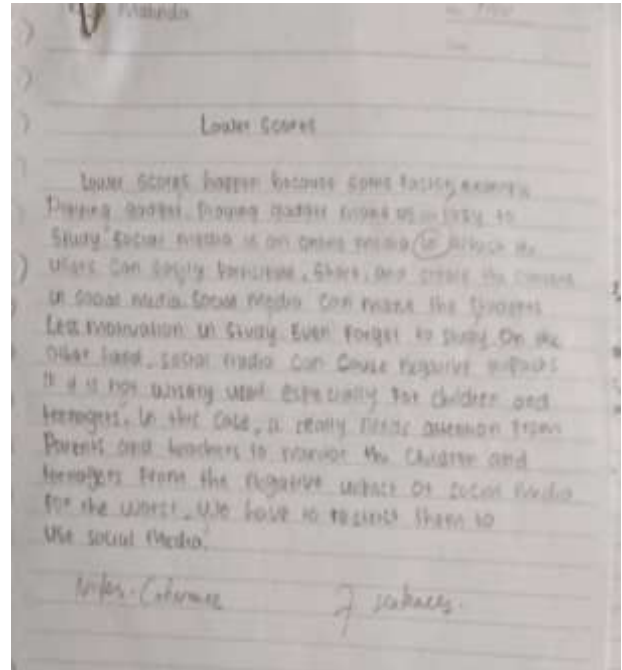 Lower Scores
Lower Scores happen because some factors, example
Playing gadget. Playing gadget make us lazy to
Study. Social media is an online media in which the
users can easily participate, Share, and create the content
in social media. Social media can make the students
Less motivation in study even forget to study. On the
other hand, social media can cause negative impacts
if it is not wisely used especially for children and
teenagers. In this case, it really needs attention from
Parents and teachers to monitor the children and
teenagers from the negative impact of social media
for the worst. We have to restrict them to
Use social media.
7 sentences.